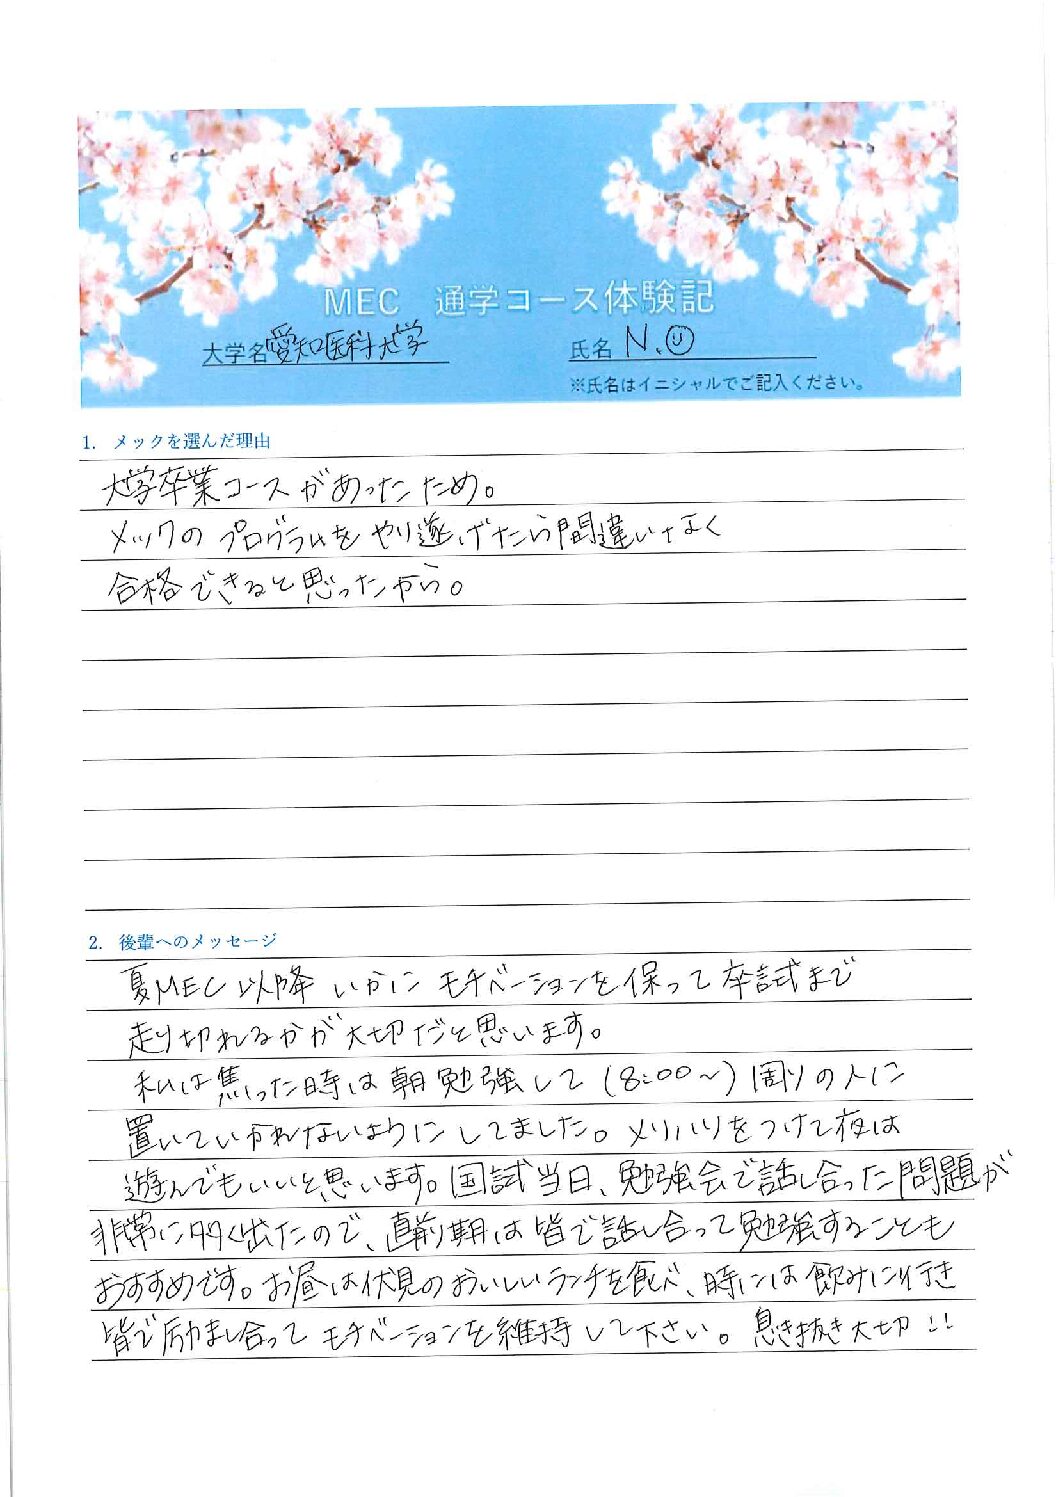 MEC 通学コース体験記
大学名 愛知医科大学 氏名 N.O
※氏名はイニシャルでご記入ください。
1. メックを選んだ理由
大学卒業コースがあったため。
メックのプログラムをやり遂げたら間違いなく
合格できると思ったから。
2. 後輩へのメッセージ
夏MEC以降いかにモチベーションを保って卒試まで
走り切れるかが大切だと思います。
私は焦った時は朝勉強して(8:00〜)周りの人に
置いていかれないようにしてました。メリハリをつけて夜は
遊んでもいいと思います。国試当日、勉強会で話し合った問題が
非常に多く出たので、直前期は皆で話し合って勉強することも
おすすめです。お昼は伏見のおいしいランチを食べ、時には飲みに行き
皆で励まし合ってモチベーションを維持して下さい。息き抜き大切!!